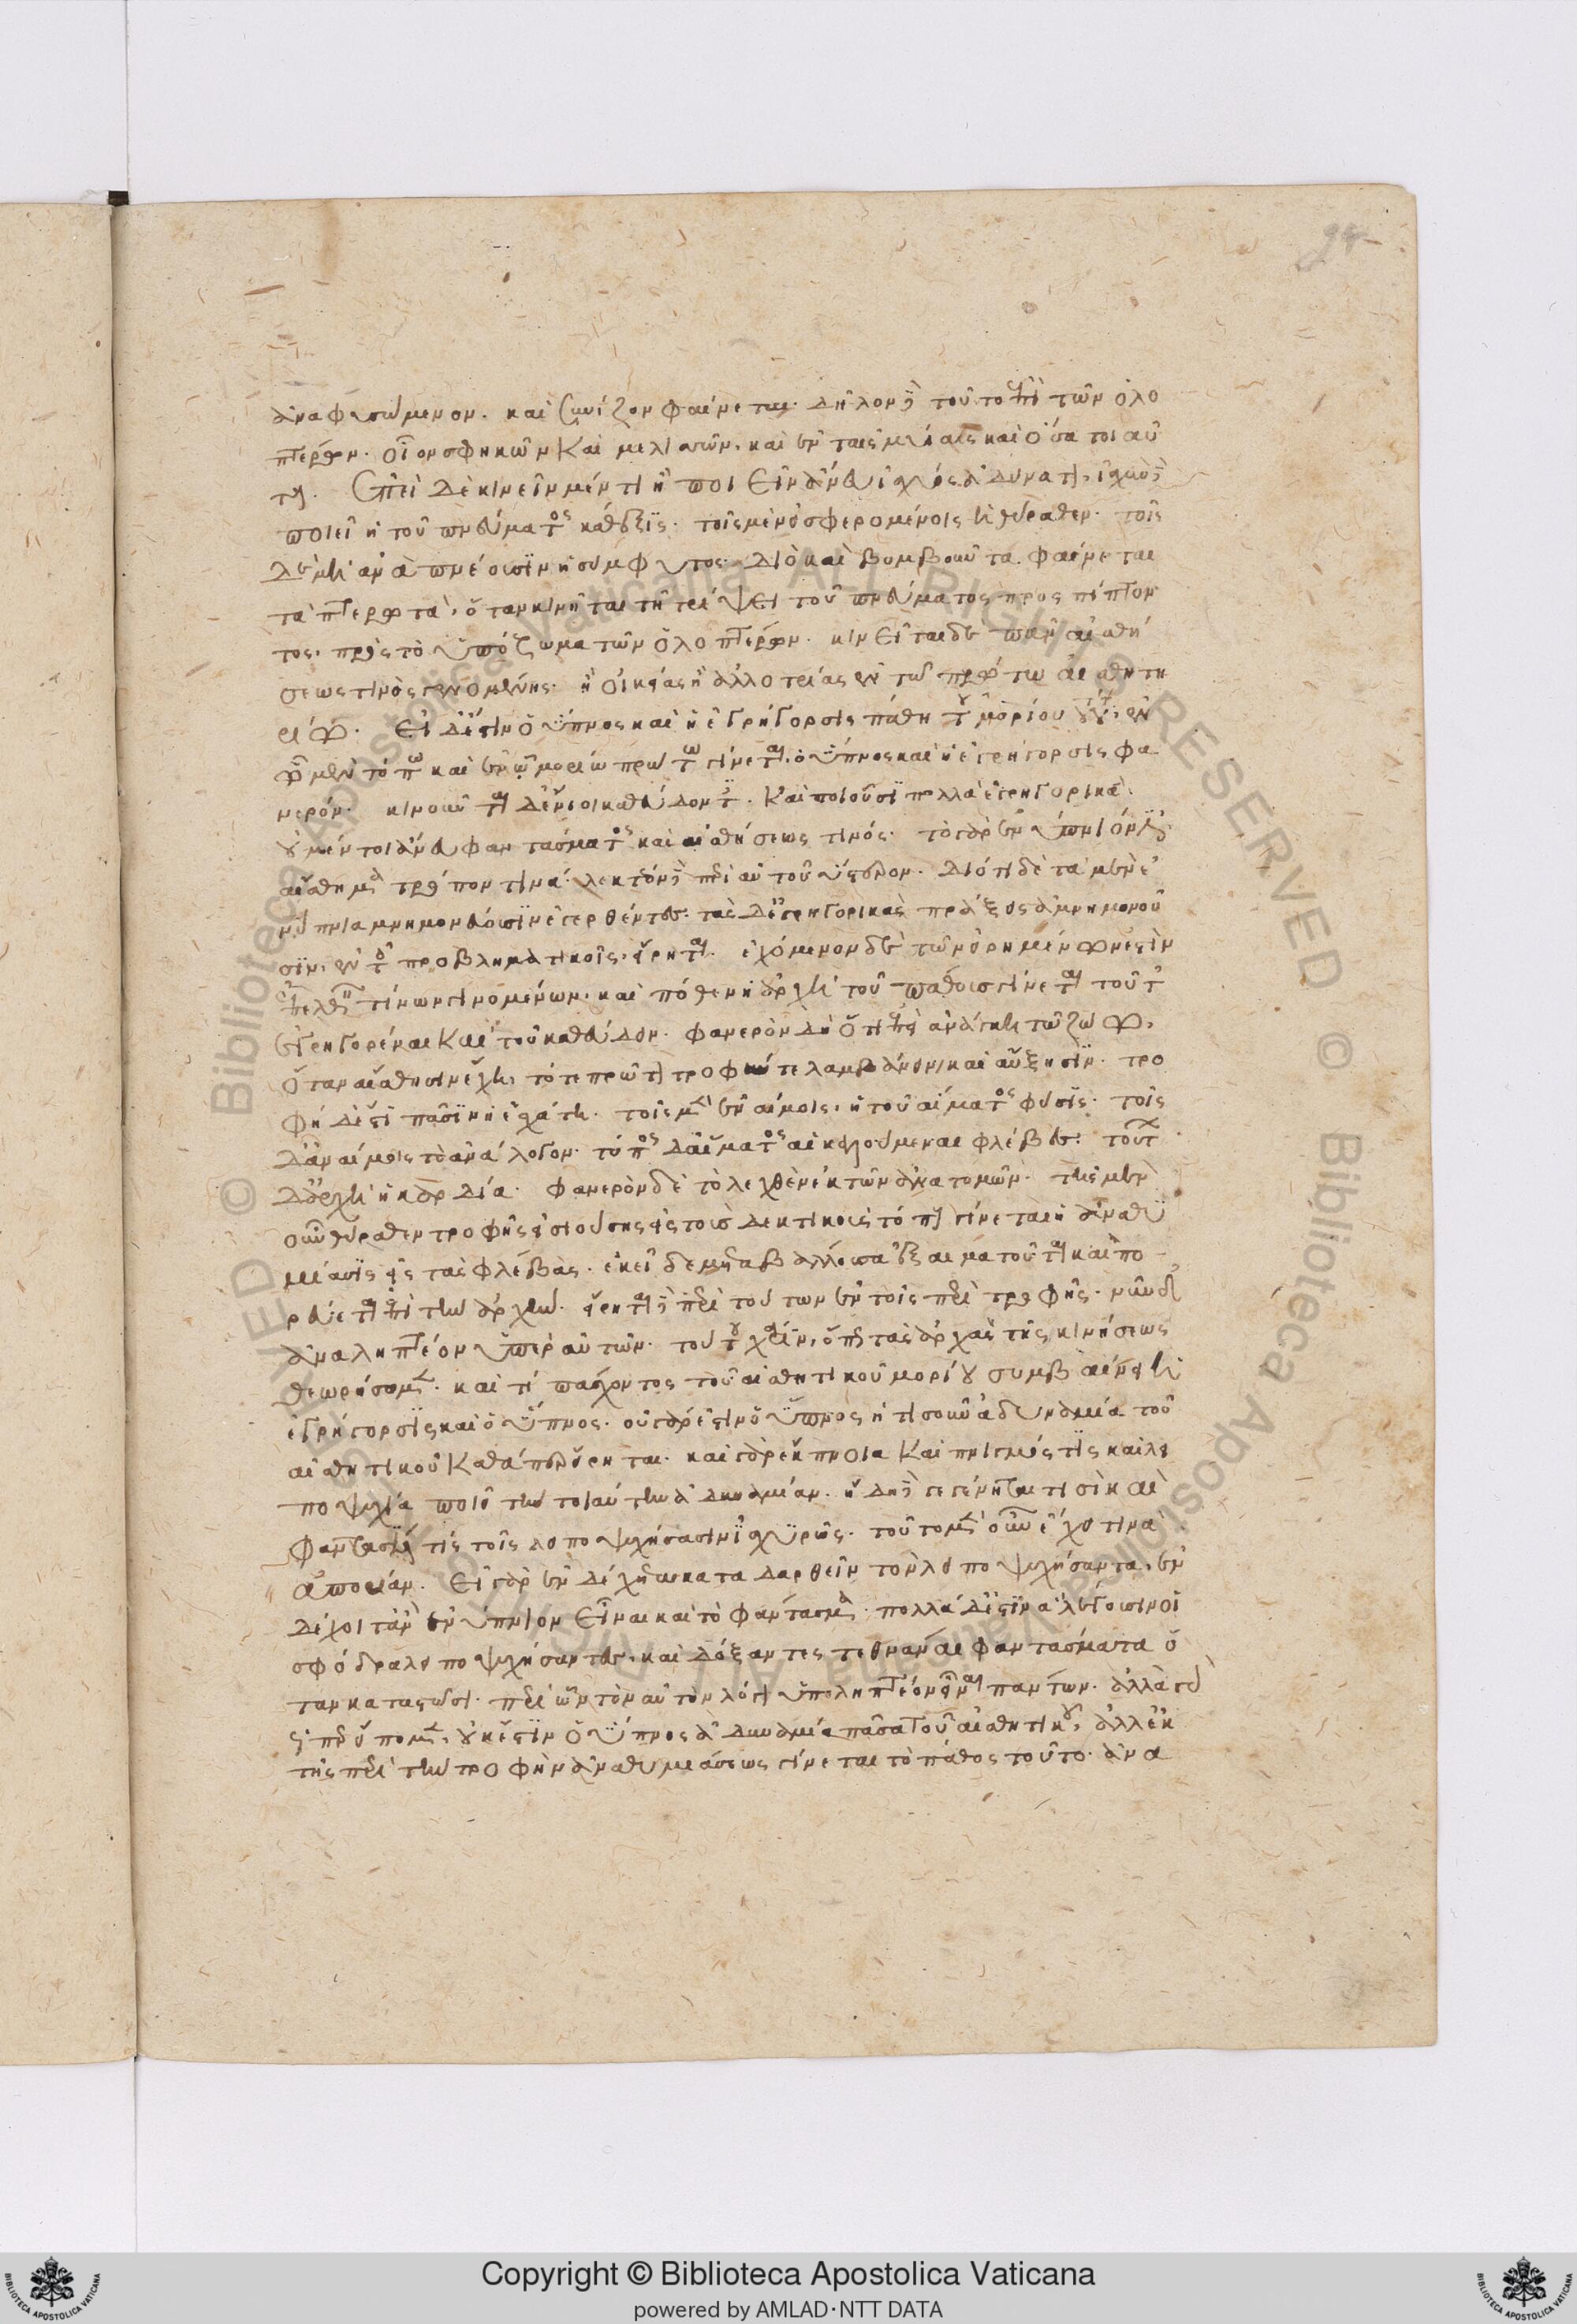 ἀναφυσώμενον. καὶ συνίζον φαίνεται. δῆλον δὲ τοῦτο ἐπὶ τῶν ὁλο
πτέρων. οἷον σφηκῶν καὶ μελισσῶν. καὶ ἐν ταῖς μυίαις καὶ ὅσα τοιαῦ
τα. Ἐπεὶ δὲ κινεῖν μέν τι ἢ ποιεῖν ἄνευ ἰσχύος ἀδύνατον, ἰσχὺν δὲ
ποιεῖ ἡ τοῦ πνεύματος κάθεξις. τοῖς μὲν εἰσφερομένοις ἡ θύραθεν. τοῖς
δὲ μὴ ἀναπνέουσιν ἡ σύμφυτος. διὸ καὶ βομβοῦντα φαίνεται
τὰ πτερωτά, ὅταν κινῆται τῇ τρίψει τοῦ πνεύματος προσπίπτον
τος. πρὸς τὸ ὑπόζωμα τῶν ὁλοπτέρων. κινεῖται δὲ πᾶν αἰσθή
σεώς τινος γενομένης. ἢ οἰκείας ἢ ἀλλοτρίας ἐν τῷ πρώτῳ αἰσθητη
ρίῳ. Εἰ δέ ἐστιν ὁ ὕπνος καὶ ἡ ἐγρήγορσις πάθη τοῦ μορίου τούτου, ἐν
ᾧ μὲν τόπῳ καὶ ἐν ᾧ μορίῳ πρώτῳ γίνεται ὁ ὕπνος καὶ ἡ ἐγρήγορσις φα
νερόν. κινοῦνται δ' ἔνιοι καθεύδοντες. καὶ ποιοῦσι πολλὰ ἐγρηγορικά.
οὐ μέντοι ἄνευ φαντάσματος καὶ αἰσθήσεώς τινος. τὸ γὰρ ἐνύπνιόν ἐστιν
αἴσθημα τρόπον τινά. λεκτέον δὲ περὶ αὐτοῦ ὕστερον. διότι δὲ τὰ μὲν ἐ
νύπνια μνημονεύουσιν ἐγερθέντες. τὰς δ' ἐγρηγορικὰς πράξεις ἀμνημονοῦ
σιν, ἐν τοῖς προβληματικοῖς, εἴρηται. ἐχόμενον δὲ τῶν εἰρημένων ἐστὶν
ἐπελθεῖν τίνων γινομένων. καὶ πόθεν ἡ ἀρχὴ τοῦ πάθους γίνεται τοῦ τ'
ἐγρηγορέναι καὶ τοῦ καθεύδειν. φανερὸν δὴ ὅτι ἐπεὶ ἀνάγκη τῷ ζώῳ,
ὅταν αἴσθησιν ἔχῃ, τότε πρῶτον τροφήν τε λαμβάνειν καὶ αὔξησιν. τρο
φὴ δ' ἐστὶ πᾶσιν ἡ ἐσχάτη. τοῖς μὲν ἐναίμοις, ἡ τοῦ αἵματος φύσις. τοῖς
δ' ἀναίμοις τὸ ἀνάλογον. τόπος δ' αἵματος αἱ φλέβες. τούτων
δ' ἀρχὴ ἡ καρδία. φανερὸν δὲ τὸ λεχθὲν ἐκ τῶν ἀνατομῶν. τῆς μὲν
οὖν θύραθεν τροφῆς εἰσιούσης εἰς τοὺς δεκτικοὺς τόπους γίνεται ἡ ἀναθυ
μίασις εἰς τὰς φλέβας. ἐκεῖ δὲ μεταβάλλουσα ἐξαιματοῦται καὶ πο
ρεύεται ἐπὶ τὴν ἀρχήν. εἴρηται δὲ περὶ τούτων ἐν τοῖς περὶ τροφῆς. νῦν δ'
ἀναληπτέον ὑπὲρ αὐτῶν. τούτου χάριν, ὅπως τὰς ἀρχὰς τῆς κινήσεως
θεωρήσωμεν. καὶ τί πάσχοντος τοῦ αἰσθητικοῦ μορίου συμβαίνει ἡ
ἐγρήγορσις καὶ ὁ ὕπνος. οὐ γάρ ἐστιν ὁ ὕπνος ἡτισοῦν ἀδυναμία τοῦ
αἰσθητικοῦ καθάπερ εἴρηται. καὶ γὰρ ἔκνοια καὶ πνιγμός τις καὶ λει
ποψυχία ποιεῖ τὴν τοιαύτην ἀδυναμίαν. ἤδη δὲ γεγένηταί τισὶ καὶ
φαντασία τις τοῖς λειποψυχήσασιν ἰσχυρῶς. τοῦτο μὲν οὖν ἔχει τινὰ
ἀπορίαν. εἰ γὰρ ἐνδέχεται καταδαρθεῖν τὸν λειποψυχήσαντα, ἐν
δέχοιτ' ἂν ἐνύπνιον εἶναι καὶ τὸ φάντασμα. πολλὰ δ' ἐστὶν ἃ λέγουσιν οἱ
σφόδρα λειποψυχήσαντες. καὶ δόξαντες τεθνάναι φαντάσματα ὅ
ταν κατασιγῶσι. περὶ ὧν τὸν αὐτὸν λόγον ὑποληπτέον εἶναι πάντων. ἀλλὰ γὰρ
ὥσπερ εἴπομεν, οὐκ ἔστιν ὁ ὕπνος ἀδυναμία πᾶσα τοῦ αἰσθητικοῦ, ἀλλ' ἐκ
τῆς περὶ τὴν τροφὴν ἀναθυμιάσεως γίνεται τὸ πάθος τοῦτο. ἀνα